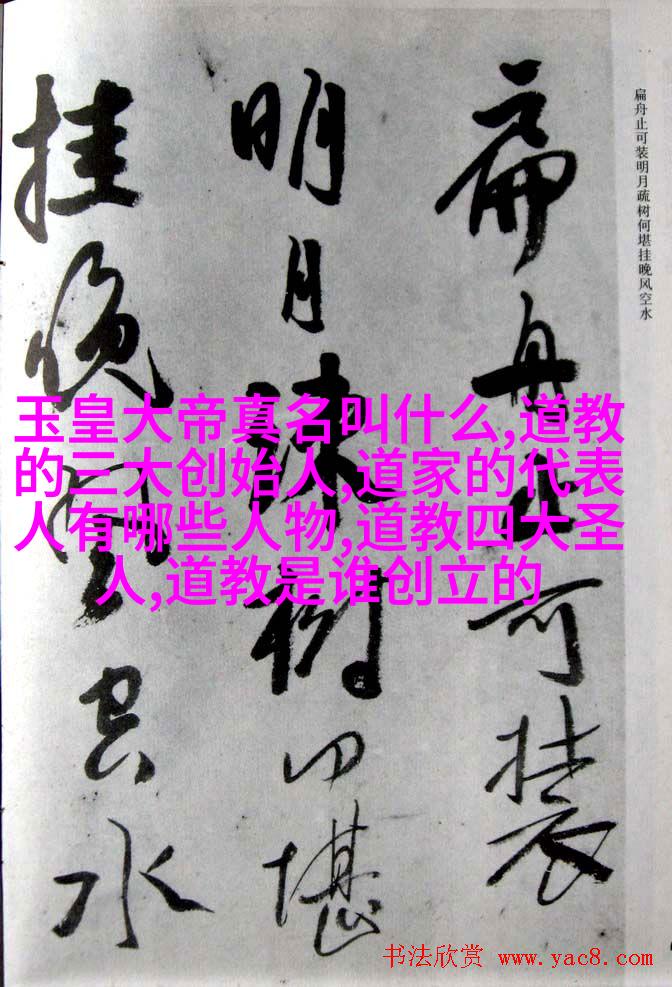 扁舟止可装
明月疎树何堪
挂晚风空水
扁舟止可装明月疏树何堪挂晚风空水
玉皇大帝真名叫什么,道教
的三大创始人,道家的代表
人有哪些人物,道教四大圣
人,道教是谁创立的
书法欣赏 www.yac8.com